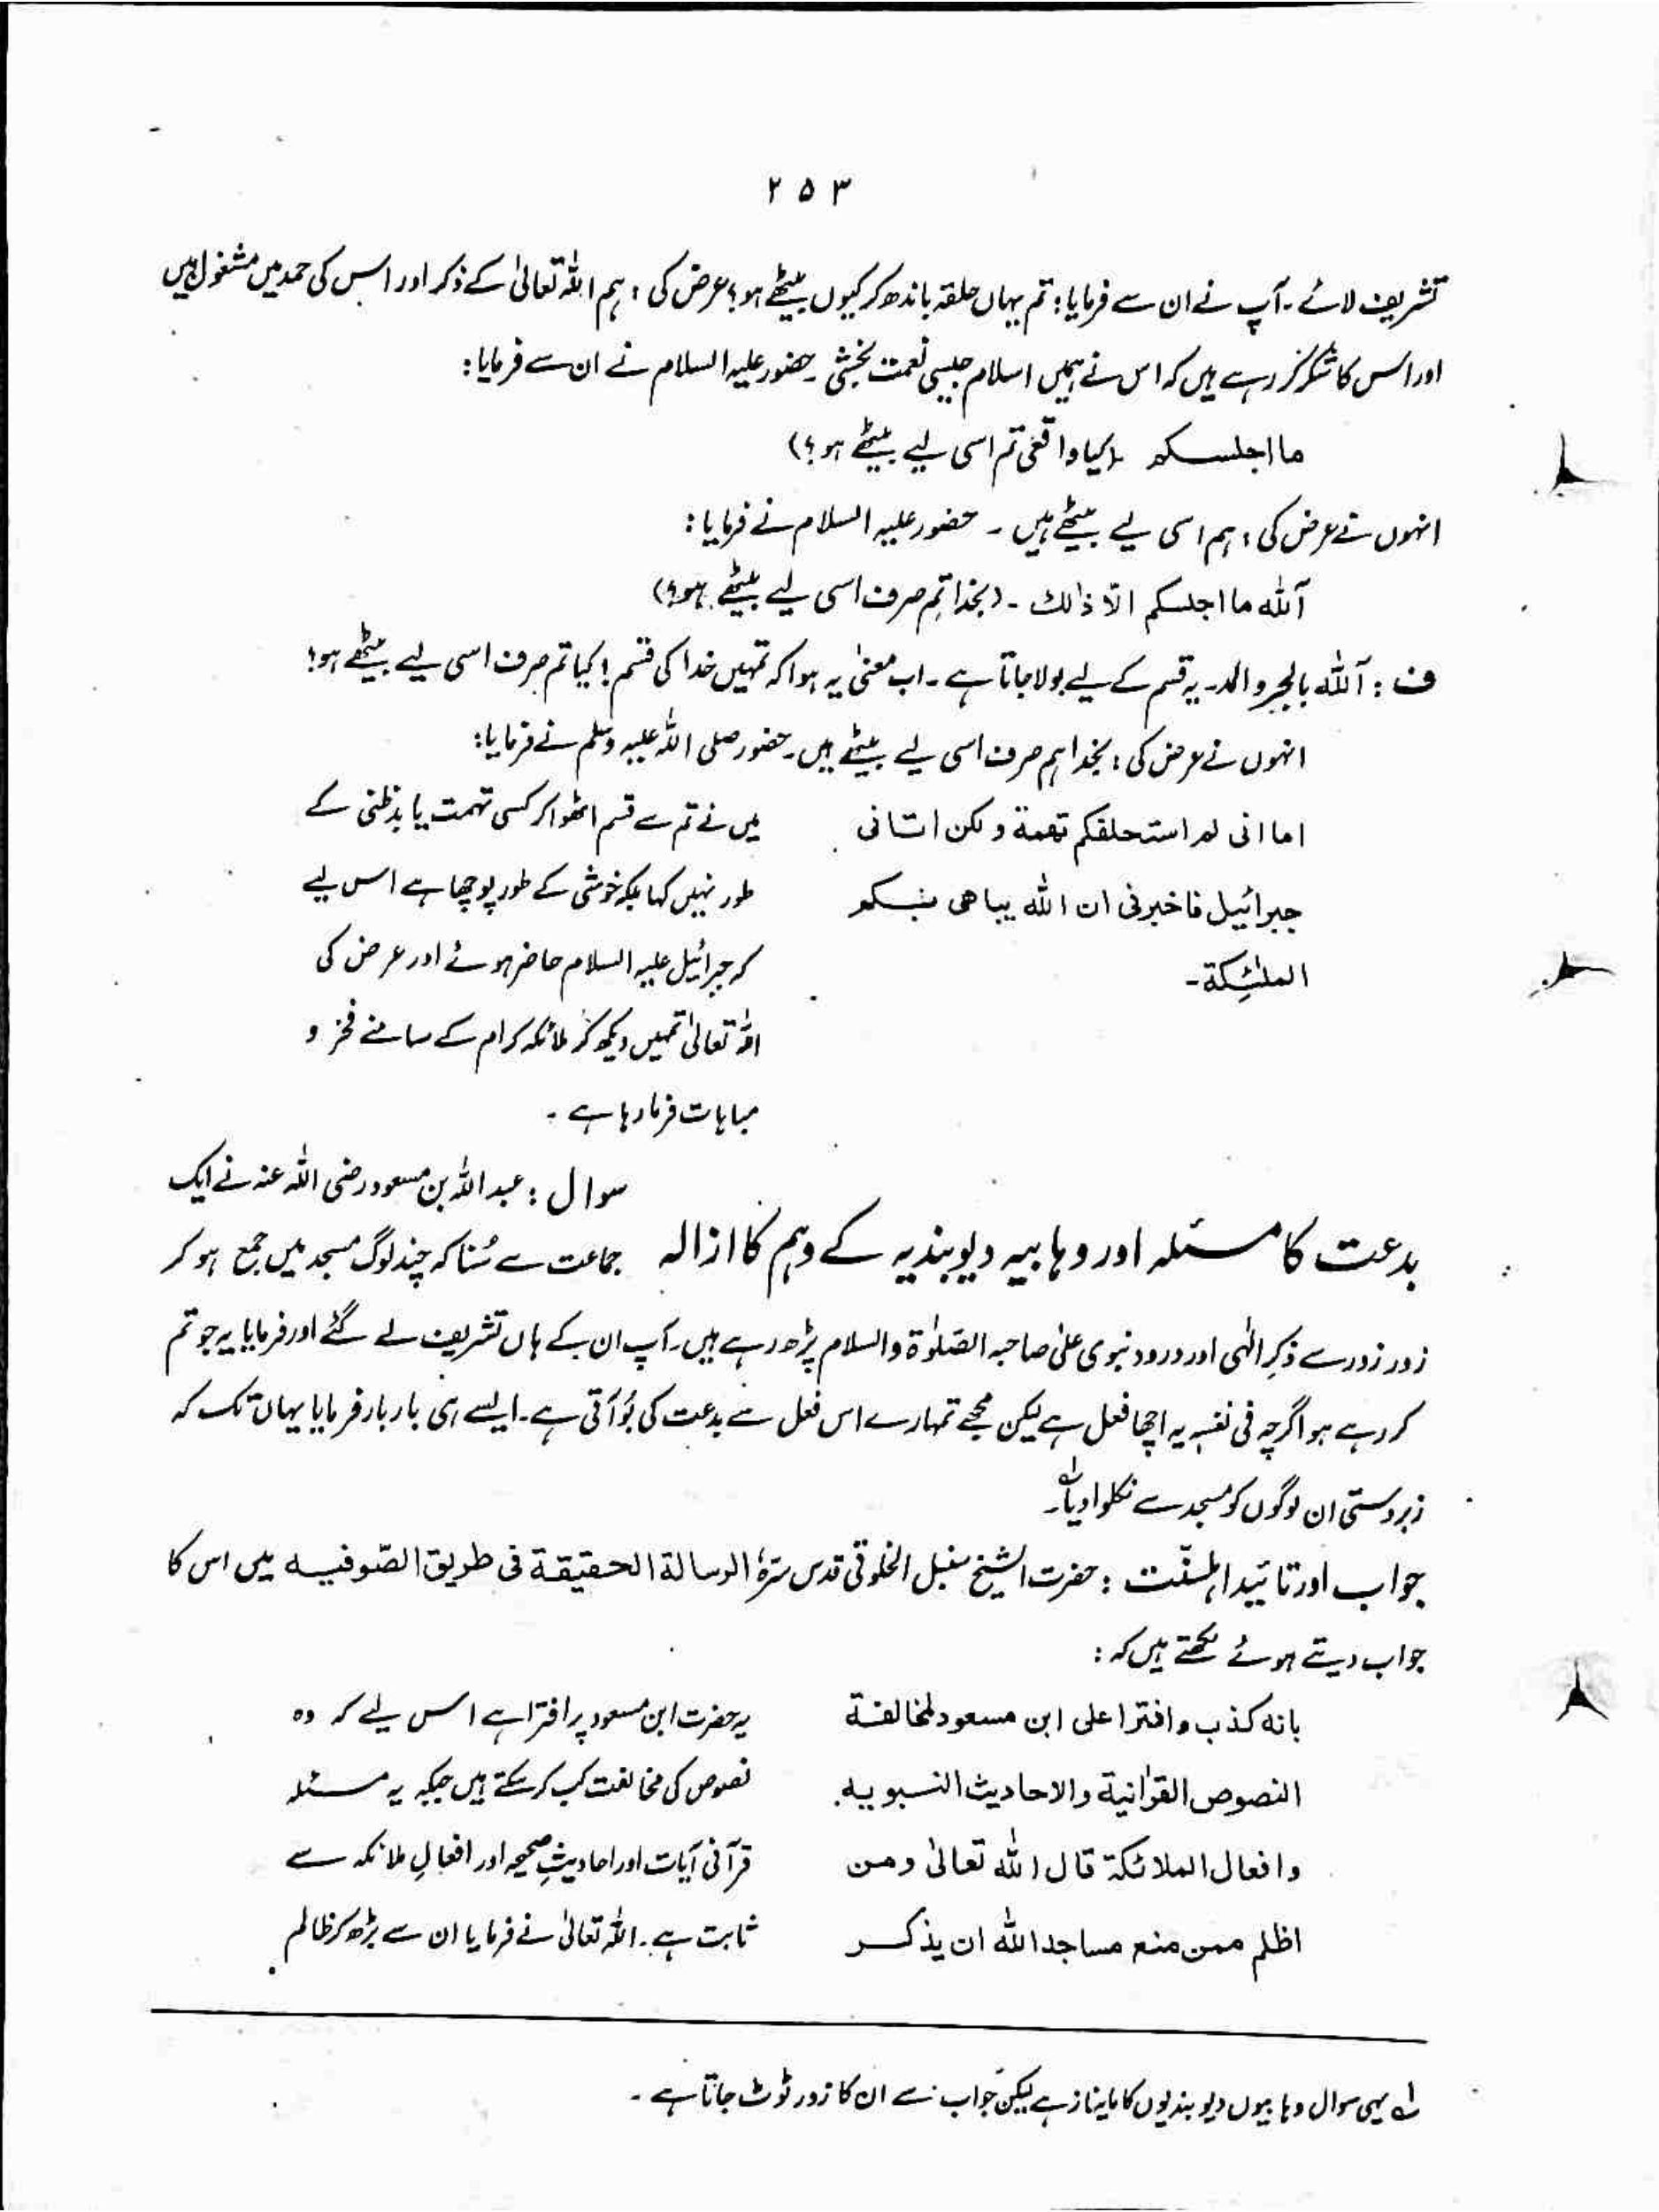 ۲۵۳
تشریف لائے۔ آپ نے ان سے فرمایا: تم یہاں حلقہ باندھ کر کیوں بیٹھے ہو؟ عرض کی: ہم اللہ تعالیٰ کے ذکر اور اس کی حمد میں مشغول ہیں
اور اس کا شکر کر رہے ہیں کہ اس نے ہمیں اسلام جیسی نعمت بخشی۔ حضور علیہ السلام نے ان سے فرمایا:
ما اجلسکم (کیا واقعی تم اسی لیے بیٹھے ہو؟)
انہوں نے عرض کی: ہم اسی لیے بیٹھے ہیں۔ حضور علیہ السلام نے فرمایا:
آللہ ما اجلسکم الّا ذالک۔ (بخدا تم صرف اسی لیے بیٹھے ہو؟)
ف: آللہ بالجر والمد۔ یہ قسم کے لیے بولا جاتا ہے۔ اب معنیٰ یہ ہوا کہ تمہیں خدا کی قسم! کیا تم صرف اسی لیے بیٹھے ہو؟
انہوں نے عرض کی: بخدا ہم صرف اسی لیے بیٹھے ہیں۔ حضور صلی اللہ علیہ وسلم نے فرمایا:
اما انی لم استحلفکم تھمۃ ولکن اتانی
جبرائیل فاخبرنی ان اللہ یباھی بکم
الملٰئکۃ۔
میں نے تم سے قسم اٹھوا کر کسی تہمت یا بدظنی کے
طور نہیں کہا بلکہ خوشی کے طور پوچھا ہے اس لیے
کہ جبرائیل علیہ السلام حاضر ہوئے اور عرض کی
اللہ تعالیٰ تمہیں دیکھ کر ملائکہ کرام کے سامنے فخر و
مباہات فرما رہا ہے۔
بدعت کا مسئلہ اور وہابیہ دیوبندیہ کے وہم کا ازالہ
سوال: عبداللہ بن مسعود رضی اللہ عنہ نے ایک
جماعت سے سُنا کہ چند لوگ مسجد میں جمع ہو کر
زور زور سے ذکرِ الٰہی اور درود نبوی علیٰ صاحبہ الصّلوٰۃ والسلام پڑھ رہے ہیں۔ آپ ان کے ہاں تشریف لے گئے اور فرمایا یہ جو تم
کر رہے ہو اگرچہ فی نفسہٖ یہ اچھا فعل ہے لیکن مجھے تمہارے اس فعل سے بدعت کی بُو آتی ہے۔ ایسے ہی بار بار فرمایا یہاں تک کہ
زبردستی ان لوگوں کو مسجد سے نکلوا دیا۔ لہ
جواب اور تائید اہلسنّت: حضرت الشیخ سنبل الخلوتی قدس سرّہٗ الرسالۃ الحقیقۃ فی طریق الصّوفیہ میں اس کا
جواب دیتے ہوئے لکھتے ہیں کہ:
بانہ کذب وافترا علی ابن مسعود لمخالفۃ
النصوص القرٰانیۃ والاحادیث النبویہ
وافعال الملائکۃ قال اللہ تعالیٰ ومن
اظلم ممن منع مساجد اللہ ان یذکر
یہ حضرت ابن مسعود پر افترا ہے اس لیے کہ وہ
نصوص کی مخالفت کب کر سکتے ہیں جبکہ یہ مسئلہ
قرآنی آیات اور احادیثِ صحیحہ اور افعالِ ملائکہ سے
ثابت ہے۔ اللہ تعالیٰ نے فرمایا ان سے بڑھ کر ظالم
لہ یہی سوال وہابیوں دیوبندیوں کا مایہ ناز ہے لیکن جواب سے ان کا زور ٹوٹ جاتا ہے۔